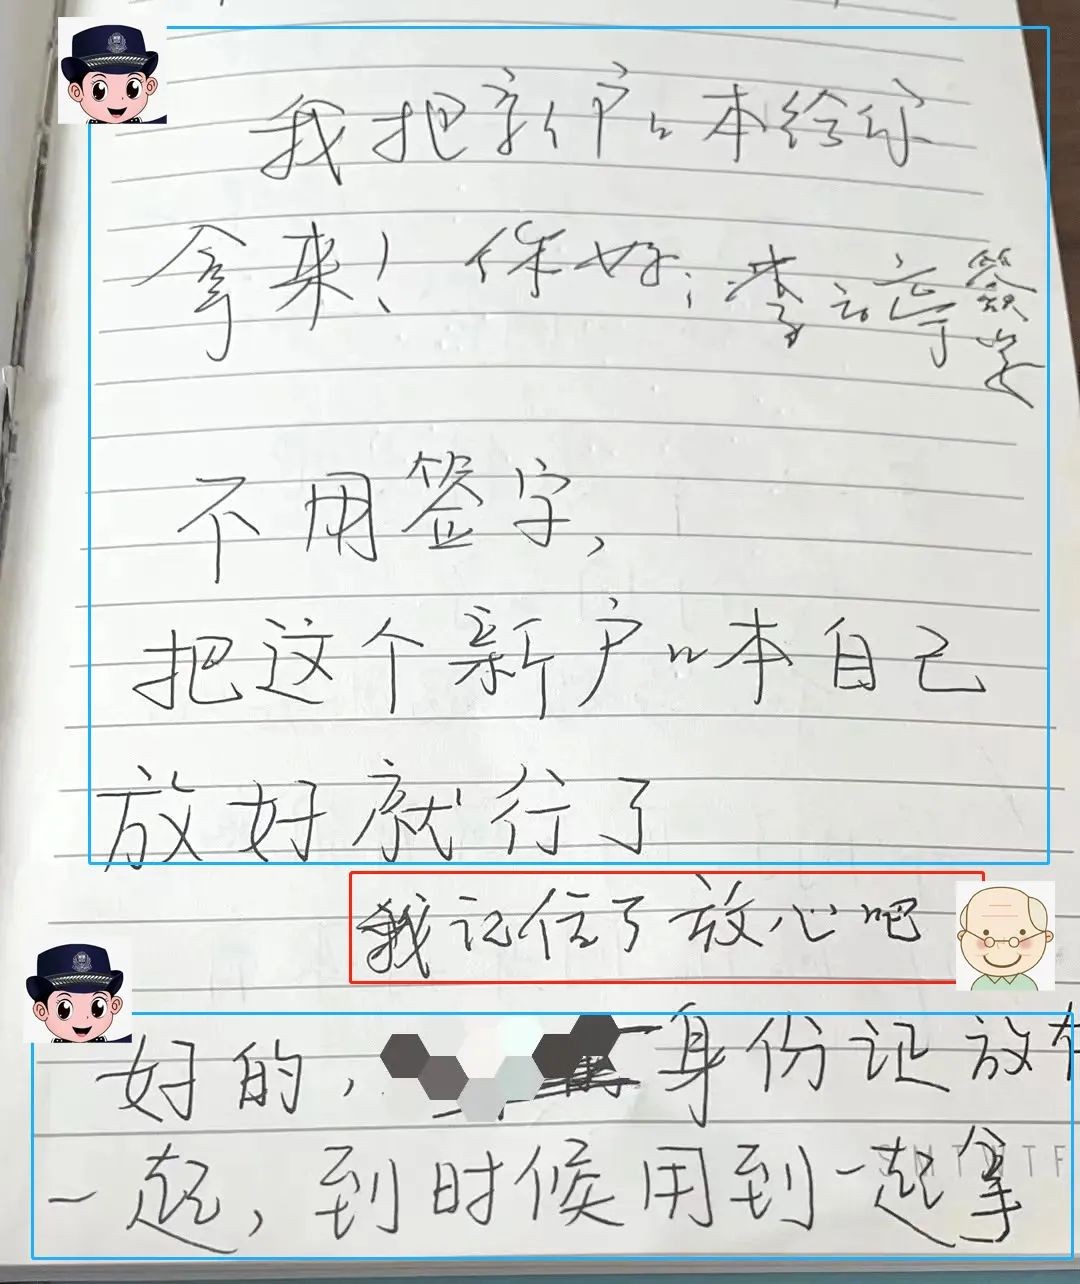 我把新户口本给你
拿来！你好；李 签字
不用签字，
把这个新户口本自己
放好就行了
我记住了放心吧
好的， 身份证放在
一起，到时候用到一起拿